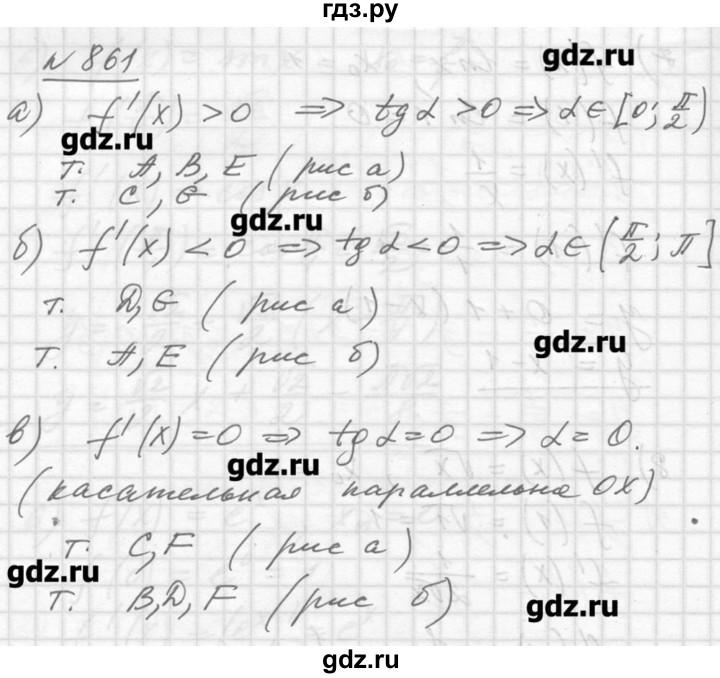 гдз.ру
N 861
gdz.ru
а) f'(x) > 0 => tg α > 0 => α ∈ [0; π/2)
gdz.ru
т. A, B, E (рис а)
т. C, G (рис б)
gdz.ru
б) f'(x) < 0 => tg α < 0 => α ∈ (π/2; π]
т. D, G (рис а)
gdz.ru
т. A, E (рис б)
в) f'(x) = 0 => tg α = 0 => α = 0.
gdz.ru
(касательная параллельна OX)
т. C, F (рис а)
gdz.ru
т. B, D, F (рис б)
gdz.ru
gdz.ru